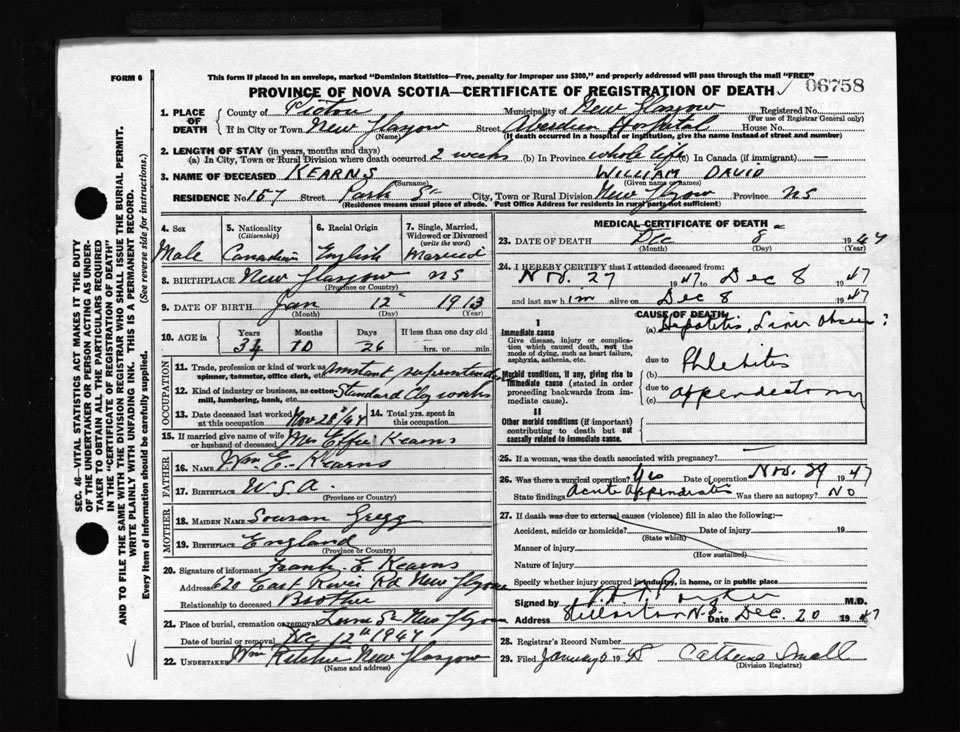 FORM 6
This form if placed in an envelope, marked "Dominion Statistics—Free, penalty for improper use $300," and properly addressed will pass through the mail "FREE"
PROVINCE OF NOVA SCOTIA—CERTIFICATE OF REGISTRATION OF DEATH
06758
1. PLACE OF DEATH
County of Pictou Municipality of New Glasgow Registered No.
(For use of Registrar General only)
If in City or Town New Glasgow Street Aberdeen Hospital House No.
(Name) (If death occurred in a hospital or institution, give the name instead of street and number)
2. LENGTH OF STAY (in years, months and days)
(a) In City, Town or Rural Division where death occurred 2 weeks (b) In Province whole life (c) In Canada (if immigrant) —
3. NAME OF DECEASED KEARNS WILLIAM DAVID
(Surname) (Given name or names)
RESIDENCE No. 157 Street Park St City, Town or Rural Division New Glasgow Province NS
(Residence means usual place of abode. Post Office Address for residents in rural parts not sufficient)
4. Sex
Male
5. Nationality
(Citizenship)
Canadian
6. Racial Origin
English
7. Single, Married, Widowed or Divorced
(write the word)
Married
8. BIRTHPLACE New Glasgow NS
(Province or Country)
9. DATE OF BIRTH Jan 12 1913
(Month) (Day) (Year)
10. AGE in
Years Months Days If less than one day old
34 10 26 hrs. or min.
OCCUPATION
11. Trade, profession or kind of work as spinner, teamster, office clerk, etc.
12. Kind of industry or business, as cotton-mill, lumbering, bank, etc. Standard Clay works
13. Date deceased last worked at this occupation Nov 28/47
14. Total yrs. spent in this occupation
15. If married give name of wife or husband of deceased Mrs Effie Kearns
FATHER
16. NAME Wm E. Kearns
17. BIRTHPLACE
(Province or Country)
MOTHER
18. MAIDEN NAME Gregg
19. BIRTHPLACE England
(Province or Country)
20. Signature of informant Frank E Kearns
Address 620 East River Rd New Glasgow
Relationship to deceased Brother
21. Place of burial, cremation or removal New Glasgow
Date of burial or removal Dec 12th 1947
22. UNDERTAKER Wm Ritchie New Glasgow
(Name and address)
MEDICAL CERTIFICATE OF DEATH
23. DATE OF DEATH Dec 8 1947
(Month) (Day) (Year)
24. I HEREBY CERTIFY that I attended deceased from:
Nov. 27 1947 to Dec 8 1947
and last saw h im alive on Dec 8 1947
CAUSE OF DEATH
I
Immediate cause
Give disease, injury or complication which caused death, not the mode of dying, such as heart failure, asphyxia, asthenia, etc.
(a) Hepatitis, Liver Abscess?
due to
Phlebitis
Morbid conditions, if any, giving rise to immediate cause (stated in order proceeding backwards from immediate cause).
(b) due to
(c) appendectomy
II
Other morbid conditions (if important) contributing to death but not causally related to immediate cause.
25. If a woman, was the death associated with pregnancy?
26. Was there surgical operation? Yes Date of operation Nov. 29 1947
State findings Acute Appendicitis Was there an autopsy? NO
27. If death was due to external causes (violence) fill in also the following:—
Accident, suicide or homicide? Date of injury 19
(State which)
Manner of injury
(How sustained)
Nature of injury
Specify whether injury occurred in industry, in home, or in public place
Signed by M.D.
Stellarton N.S. Date Dec. 20 1947
28. Registrar's Record Number
29. Filed January 5 1948
(Division Registrar)
SEC. 46—VITAL STATISTICS ACT MAKES IT THE DUTY OF THE UNDERTAKER OR PERSON ACTING AS UNDERTAKER TO OBTAIN ALL THE PARTICULARS REQUIRED IN THE "CERTIFICATE OF REGISTRATION OF DEATH"
AND TO FILE THE SAME WITH THE DIVISION REGISTRAR WHO SHALL ISSUE THE BURIAL PERMIT.
WRITE PLAINLY WITH UNFADING INK. THIS IS A PERMANENT RECORD.
Every item of information should be carefully supplied. (See reverse side for instructions.)